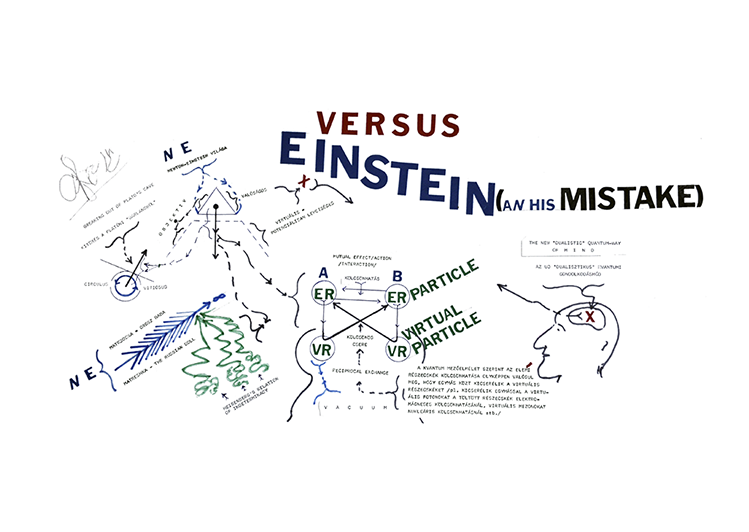 VERSUS
EINSTEIN (AN HIS MISTAKE)
N E
NEWTON-EINSTEIN VILÁGA
BREAKING OUT OF PLATO'S CAVE
KITÖRÉS A PLATONI
OBJEKTÍV
VALÓSÁGOS
VIRTUÁLIS -
POTENCIÁLISAN LEHETSÉGES
X
CIRCULUS
VITIOSUS
MATRJOSKA - OROSZ BABA
MATRJOSKA - THE RUSSIAN SOUL
∞
N E
HEISENBERG'S RELATION
OF INDETERMINACY
MUTUAL EFFECT/ACTION
/INTERACTION/
A
KÖLCSÖNHATÁS
B
ER
ER
PARTICLE
KÖLCSÖNÖS
CSERE
VR
VR
VIRTUAL
PARTICLE
RECIPROCAL EXCHANGE
V A C U U M
THE NEW "DUALISTIC" QUANTUM-WAY
OF MIND
AZ ÚJ "DUALISZTIKUS" /KVANTUM/
GONDOLKODÁSMÓD
X
A KVANTUM MEZŐELMÉLET SZERINT AZ ELEMI
RÉSZECSKÉK KÖLCSÖNHATÁSA OLYKÉPPEN VALÓSUL
MEG, HOGY EGYMÁS KÖZT KICSERÉLIK A VIRTUÁLIS
RÉSZECSKÉKET /pl. KICSERÉLIK EGYMÁSSAL A VIRTU-
ÁLIS FOTONOKAT A TÖLTÖTT RÉSZECSKÉK ELEKTRO-
MÁGNESES KÖLCSÖNHATÁSÁNÁL, VIRTUÁLIS MEZONOKAT
NUKLEÁRIS KÖLCSÖNHATÁSNÁL stb./